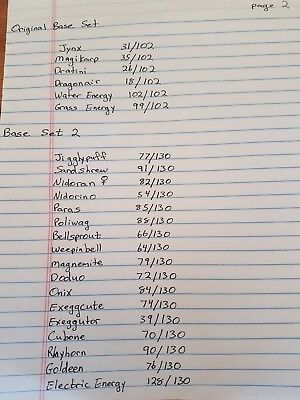 page 2
Original Base Set
Jynx 31/102
Magikarp 35/102
Dratini 26/102
Dragonair 18/102
Water Energy 102/102
Grass Energy 99/102
Base Set 2
Jigglypuff 77/130
Sandshrew 91/130
Nidoran ♀ 82/130
Nidorino 54/130
Paras 85/130
Poliwag 88/130
Bellsprout 66/130
Weepinbell 64/130
Magnemite 79/130
Doduo 72/130
Onix 84/130
Exeggcute 74/130
Exeggutor 39/130
Cubone 70/130
Rhyhorn 90/130
Goldeen 76/130
Electric Energy 128/130